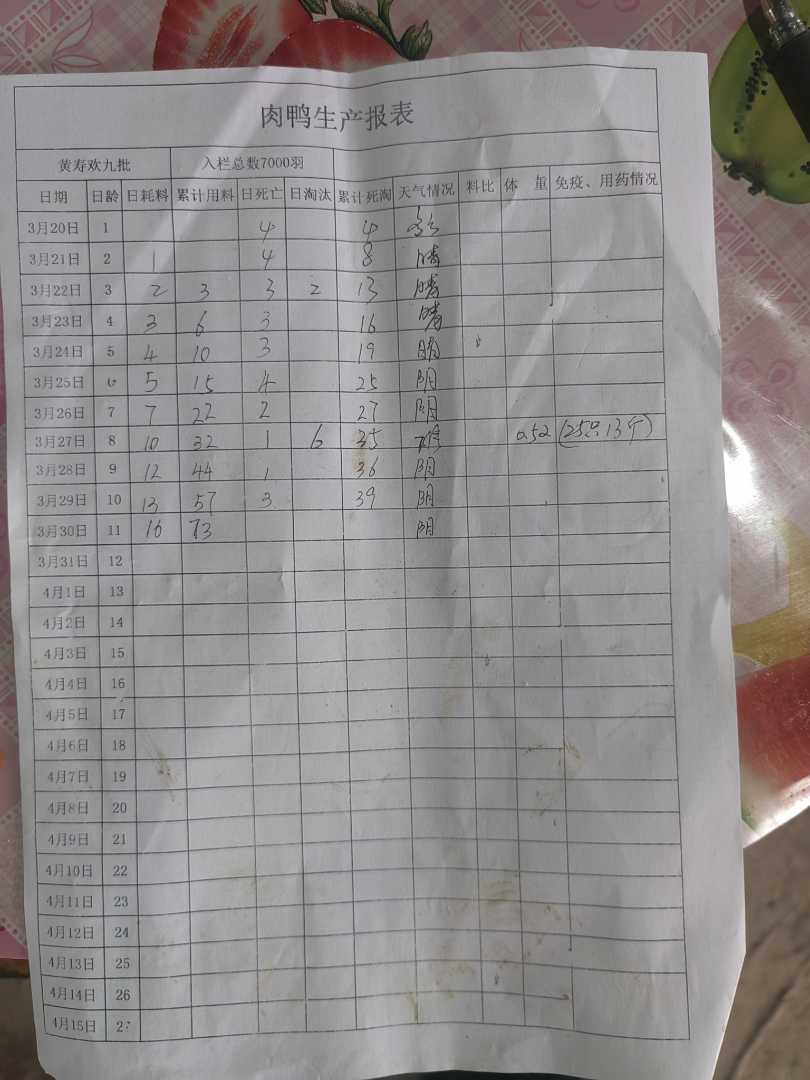 肉鸭生产报表
黄寿欢九批 入栏总数7000羽
日期 日龄 日耗料 累计用料 日死亡 日淘汰 累计死淘 天气情况 料比 体 重 免疫、用药情况
3月20日 1 4 4
3月21日 2 1 4 8 晴
3月22日 3 2 3 3 2 13 晴
3月23日 4 3 6 3 16 晴
3月24日 5 4 10 3 19 晴
3月25日 6 5 15 4 25 阴
3月26日 7 7 22 2 27 阴
3月27日 8 10 32 1 6 35 0.52 (25只13个)
3月28日 9 12 44 1 36 阴
3月29日 10 13 57 3 39 阴
3月30日 11 16 73 阴
3月31日 12
4月1日 13
4月2日 14
4月3日 15
4月4日 16
4月5日 17
4月6日 18
4月7日 19
4月8日 20
4月9日 21
4月10日 22
4月11日 23
4月12日 24
4月13日 25
4月14日 26
4月15日 27